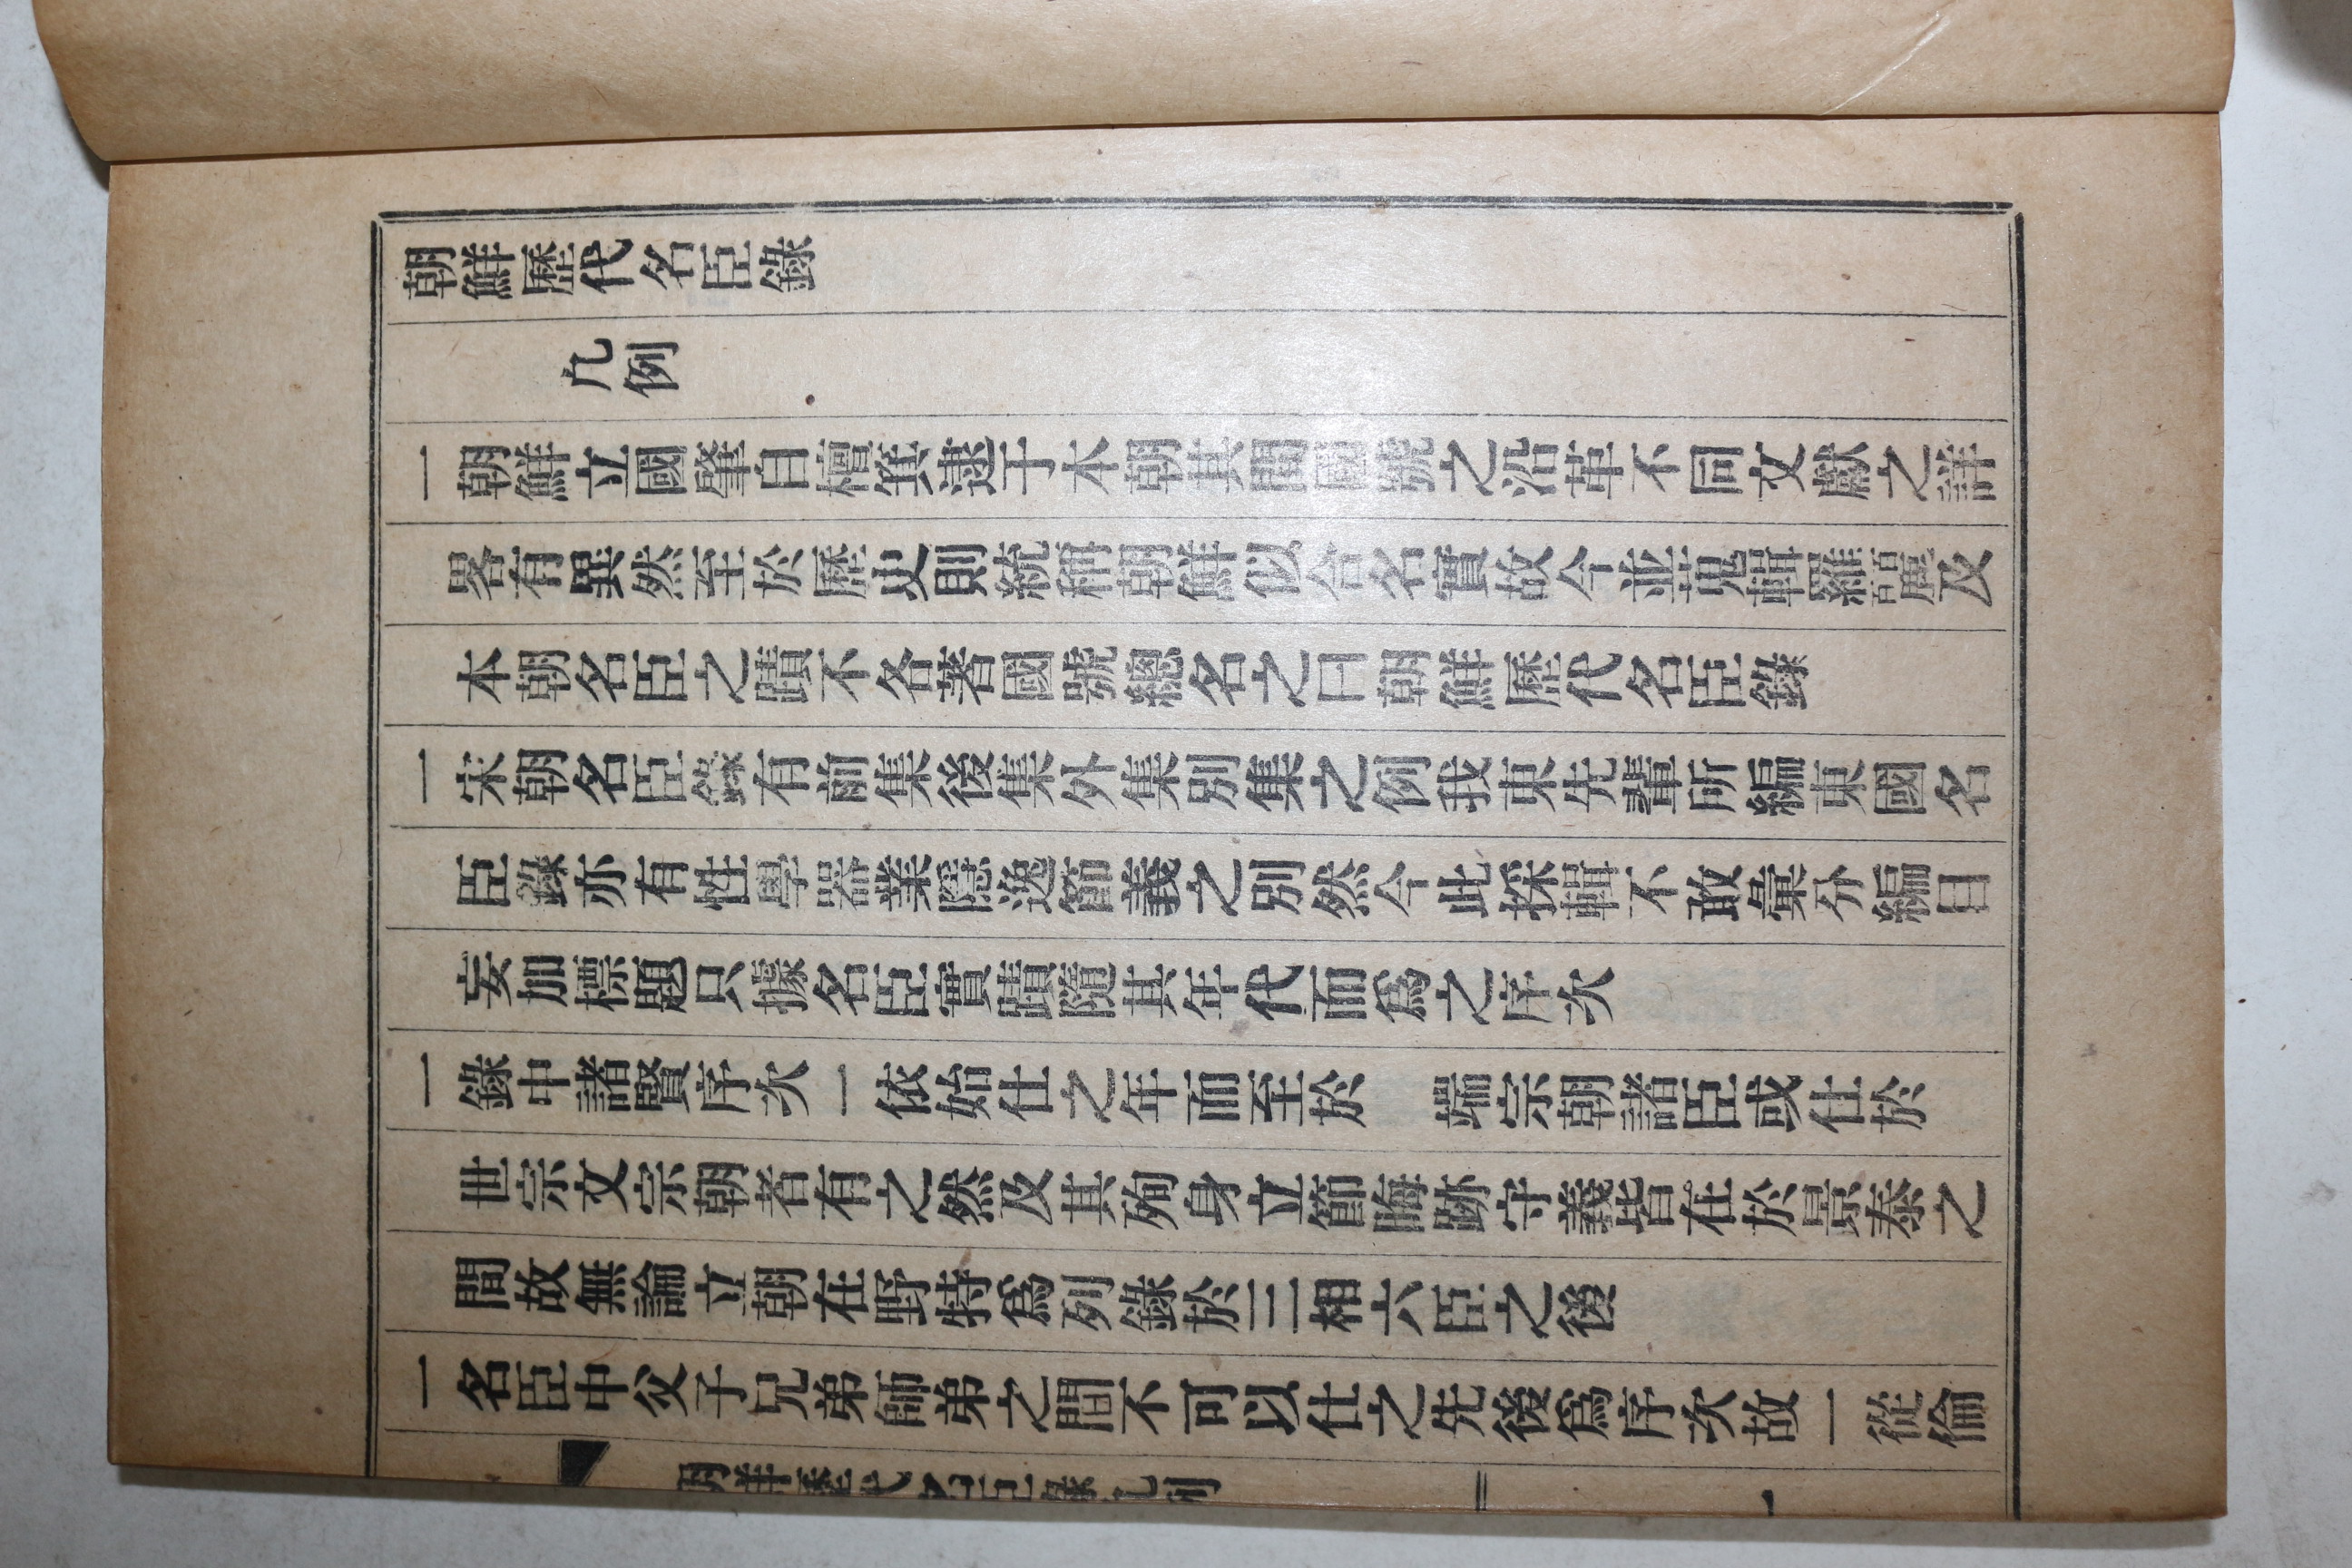 朝鮮歷代名臣錄
凡例
一朝鮮立國肇自檀箕逮于本朝其間國號之沿革不同文獻之詳
畧有異然至於歷史則統稱朝鮮以合名實故今並蒐輯羅麗及
本朝名臣之蹟不各著國號總名之曰朝鮮歷代名臣錄
一宋朝名臣錄有前集後集外集別集之例我東先輩所編東國名
臣錄亦有性學器業隱逸節義之別然今此採輯不敢彙分編目
妄加標題只據名臣實蹟隨其年代而爲之序次
一錄中諸賢序次一依始仕之年而至於 端宗朝諸臣或仕於
世宗文宗朝者有之然及其殉身立節晦跡守義皆在於景泰之
間故無論立朝在野特爲列錄於三相六臣之後
一名臣中父子兄弟師弟之間不可以仕之先後爲序次故一從倫
朝鮮歷代名臣錄凡例 一